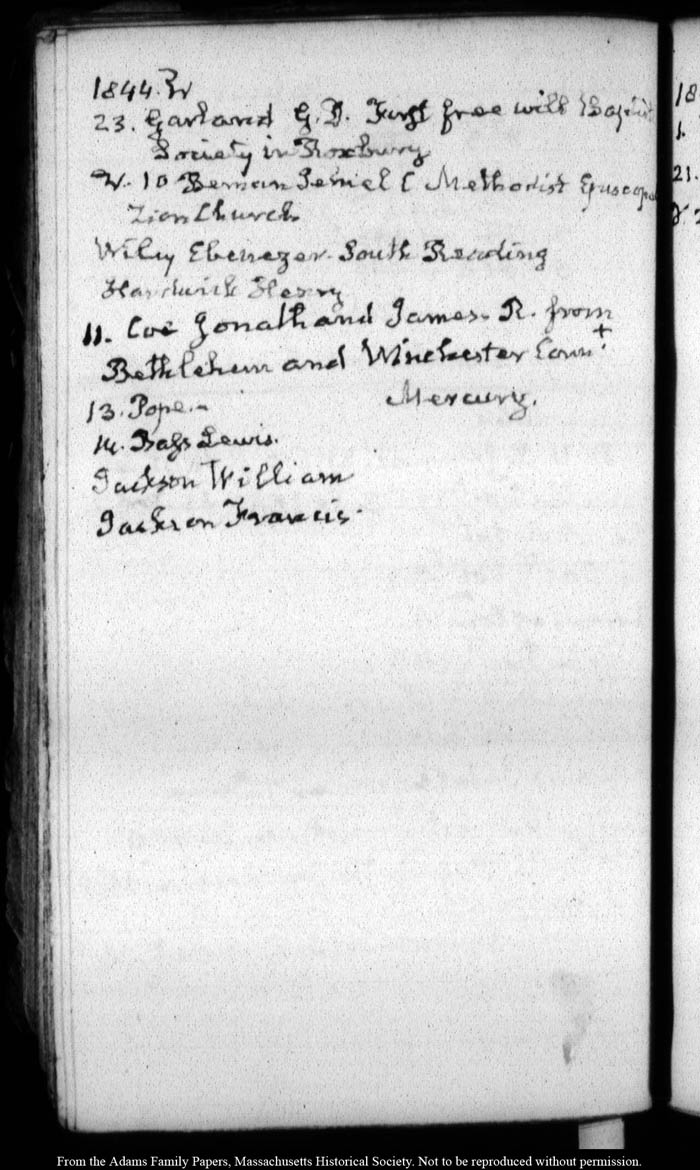 1844. IV
23. Garland G. D. First free will Baptist
Society in Roxbury
V. 10 Beman Jehiel C Methodist Episcopal
Zion Church
Wiley Ebenezer. South Reading
Hardwick Henry
11. Coe Jonath and James. R. from
Bethlehem and Winchester Connt
13. Pope.- Mercury.
14. Bass Lewis.
Jackson William
Jackson Francis.
18
1.
21.
From the Adams Family Papers, Massachusetts Historical Society. Not to be reproduced without permission.